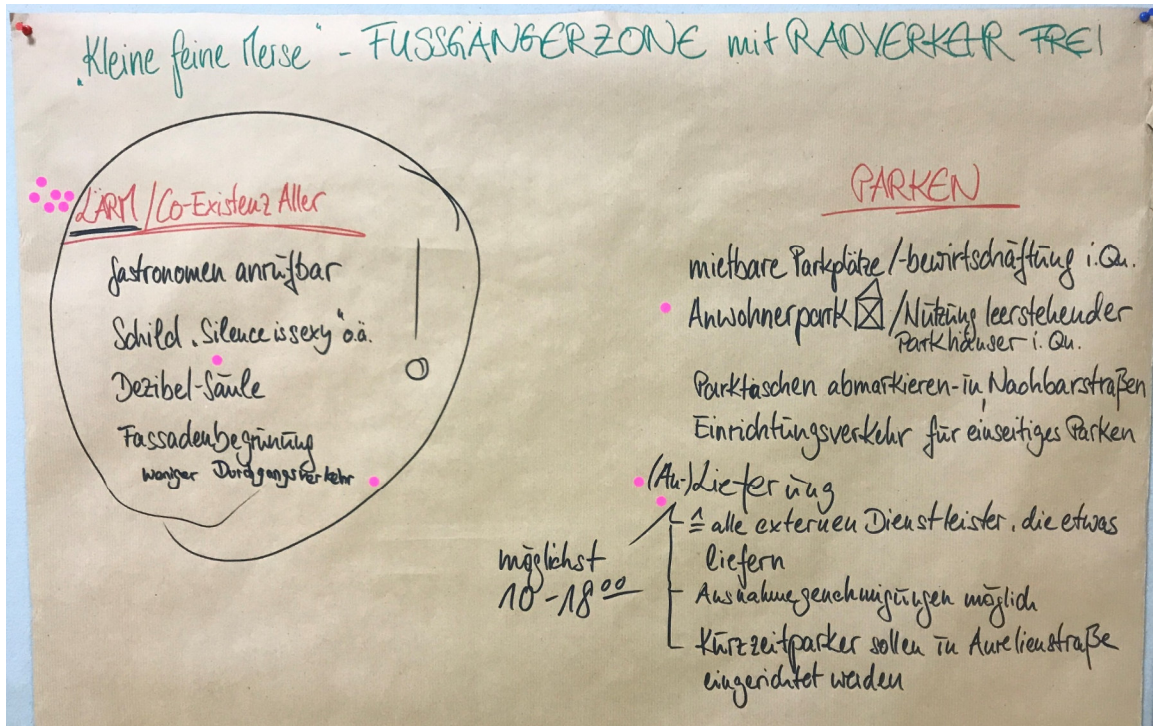 „Kleine feine Merse“ - FUSSGÄNGERZONE mit RADVERKEHR FREI
LÄRM / Co-Existenz Aller
Gastronomen anrufbar
Schild „Silence is sexy“ o.ä.
Dezibel-Säule
Fassadenbegrünung
weniger Durchgangsverkehr
!
PARKEN
mietbare Parkplätze /-bewirtschaftung i.Qu.
Anwohnerpark /Nutzung leerstehender
Parkhäuser i. Qu.
Parktaschen abmarkieren - in Nachbarstraßen
Einrichtungsverkehr für einseitiges Parken
(An-)Lieferung
≙ alle externen Dienstleister, die etwas
liefern
möglichst
10-18⁰⁰
Ausnahmegenehmigungen möglich
Kurzzeitparker sollen in Aurelienstraße
eingerichtet werden